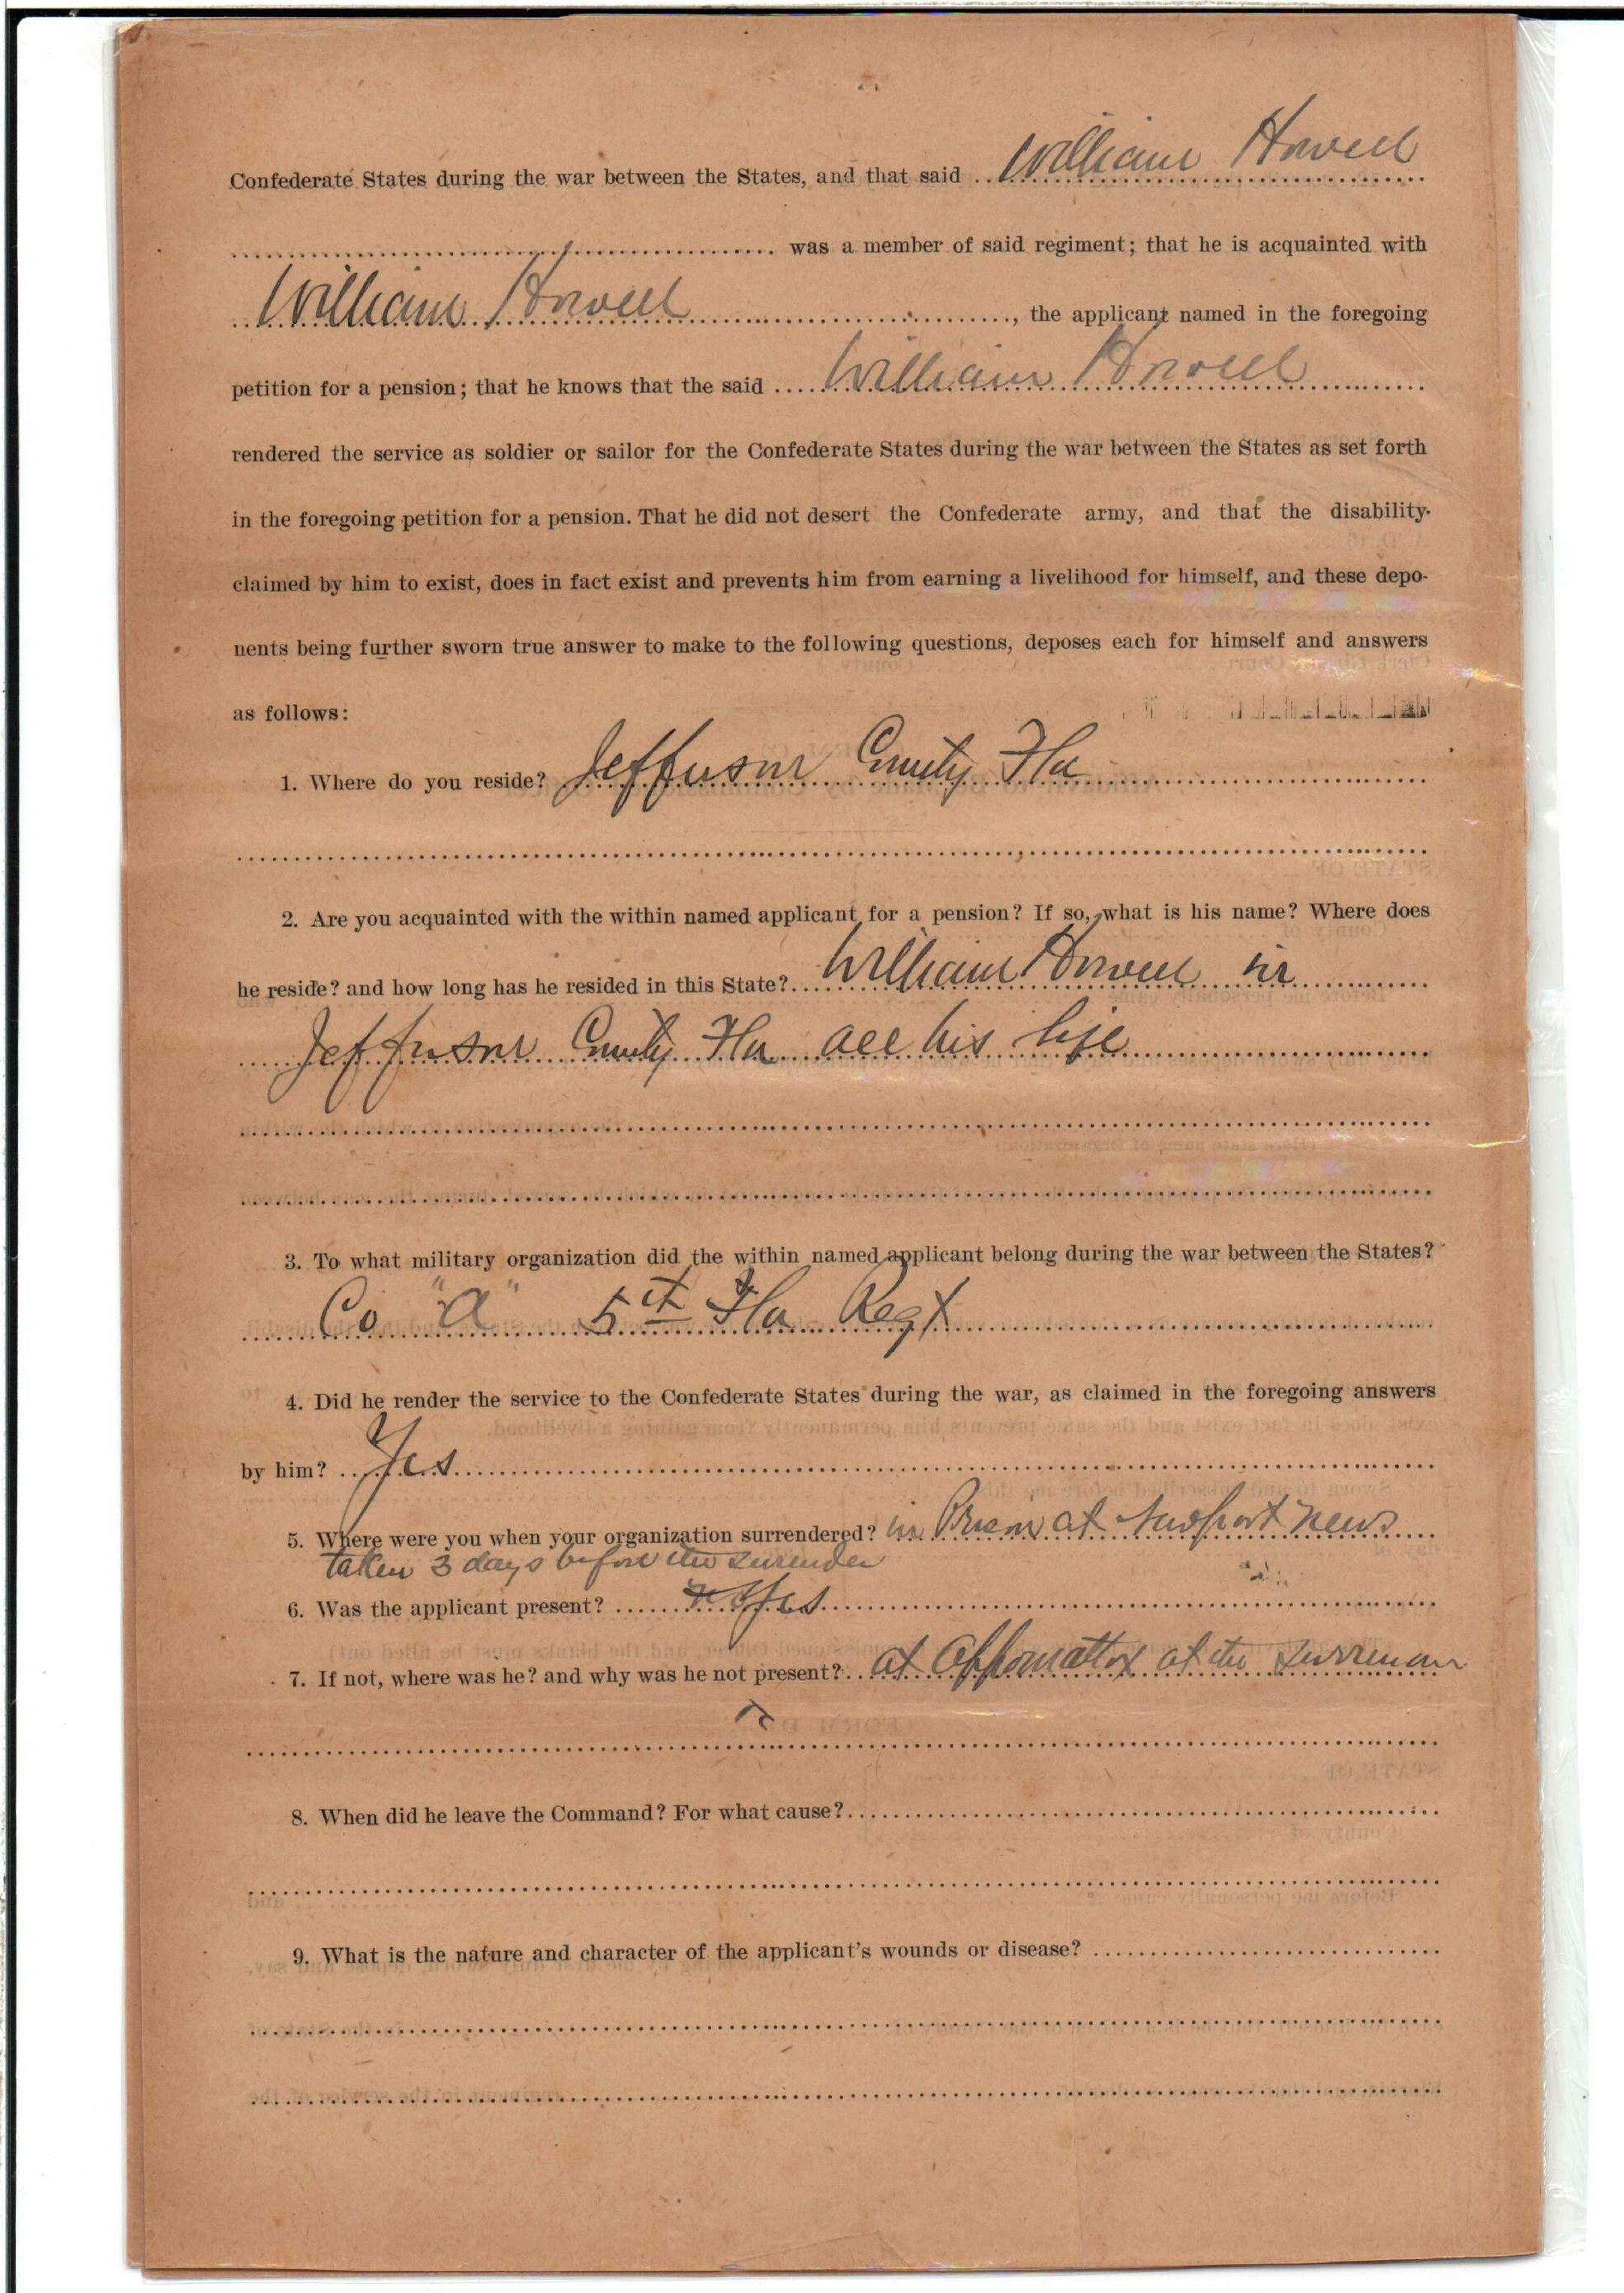 Confederate States during the war between the States, and that said William Howell
was a member of said regiment; that he is acquainted with
William Howell, the applicant named in the foregoing
petition for a pension; that he knows that the said William Howell
rendered the service as soldier or sailor for the Confederate States during the war between the States as set forth
in the foregoing petition for a pension. That he did not desert the Confederate army, and that the disability
claimed by him to exist, does in fact exist and prevents him from earning a livelihood for himself, and these depo-
nents being further sworn true answer to make to the following questions, deposes each for himself and answers
as follows:
1. Where do you reside? Jefferson County Fla
2. Are you acquainted with the within named applicant for a pension? If so, what is his name? Where does
he reside? and how long has he resided in this State? William Howell in
Jefferson County Fla all his life
3. To what military organization did the within named applicant belong during the war between the States?
Co "A" 5th Fla Regt
4. Did he render the service to the Confederate States during the war, as claimed in the foregoing answers
by him? Yes
5. Where were you when your organization surrendered? in Prison at Newport News
taken 3 days before the surrender
6. Was the applicant present? Yes
7. If not, where was he? and why was he not present? at Appomattox at the surrender
8. When did he leave the Command? For what cause?
9. What is the nature and character of the applicant's wounds or disease?